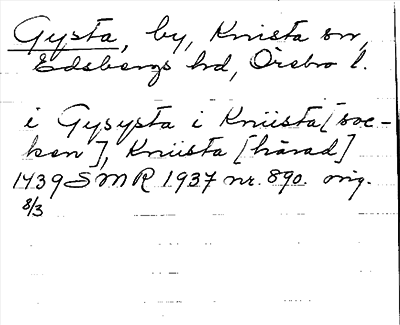 Gysta, by, Knista sn,
Edsbergs hd, Örebro l.
i Gysysta i Kniista [soc-
ken], Kniista [härad]
1439 SMR 1937 nr. 890. orig.
8/3